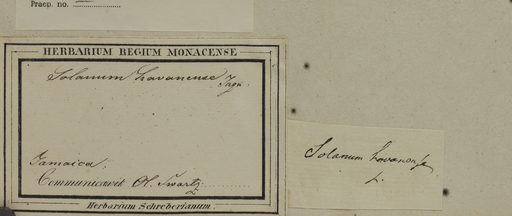 Praep. no.
HERBARIUM REGIUM MONACENSE
Solanum havanense
Jaqu.
Jamaica.
Communicavit Ol. Swartz
Herbarium Schreberianum.
Solanum havanense
L.